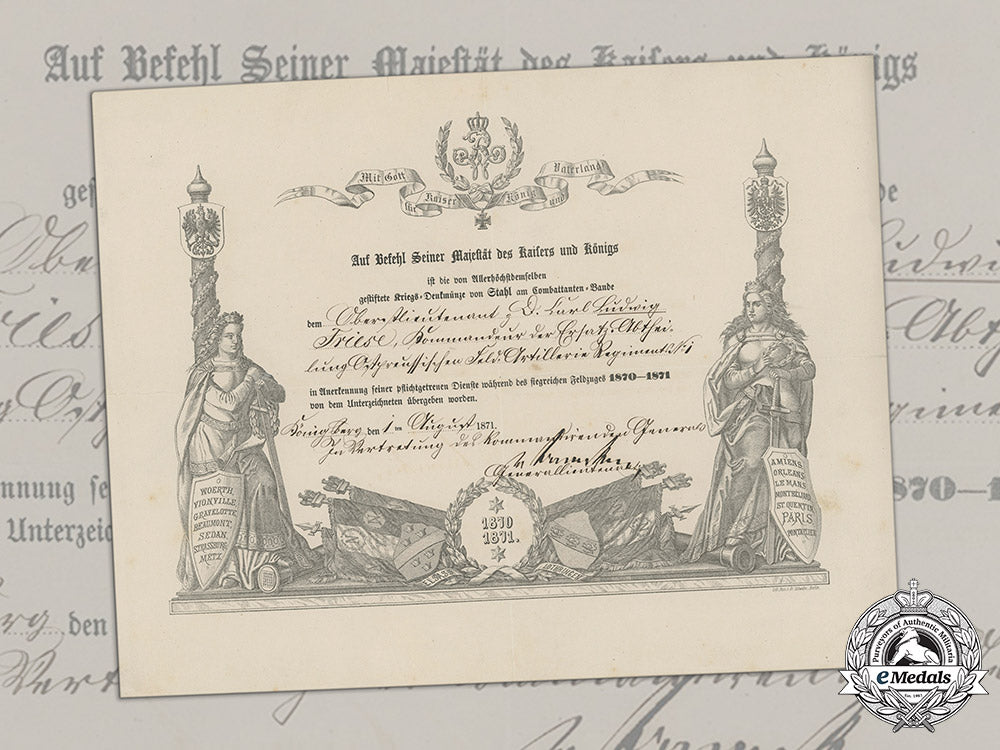 Auf Befehl Seiner Majestät des Kaisers und Königs
Mit Gott
für
Kaiser
König
und
Vaterland
Auf Befehl Seiner Majestät des Kaisers und Königs
ist die von Allerhöchstdemselben
gestiftete Kriegs-Denkmünze von Stahl am Combattanten-Bande
dem Oberstlieutenant, D. Carl Ludwig
Friese, Kommandeur der Ersatz-Abthei-
lung Ostpreussischen Feld-Artillerie Regiments No 1
in Anerkennung seiner pflichtgetreuen Dienste während des siegreichen Feldzuges 1870—1871
von dem Unterzeichneten übergeben worden.
Königsberg, den 1 ten August 1871.
In Vertretung des Kommandirenden Generals
Generallieutenant
WOERTH,
VIONVILLE
GRAVELOTTE
BEAUMONT,
SEDAN,
STRASSBURG
METZ
1870
1871.
AMIENS
ORLEANS
LE MANS
MONTBELIARD
ST. QUENTIN
PARIS
PONTARLIER
ge
be
nnung se
870—1
Unterzeic
rg, den
Purveyors of Authentic Militaria
eMedals
Est. 1967